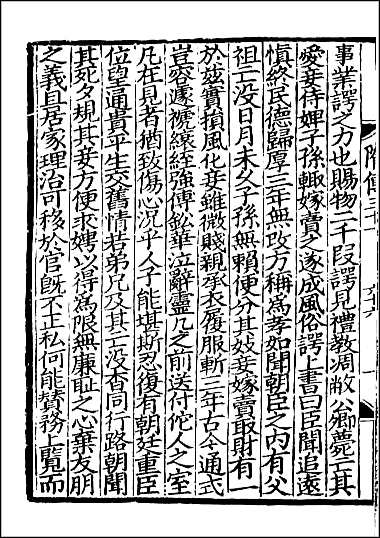 隋傳三十一 六
事業諤之力也賜物二千叚諤見禮教凋敝公卿薨亡其
愛妾侍婢子孫輒嫁賣之遂成風俗諤上書曰臣聞追遠
慎終民德歸厚三年無改方稱爲孝如聞朝臣之内有父
祖亡没日月未久子孫無賴便分其妓妾嫁賣取財有一
於兹實損風化妾雖微賤親承衣履服斬三年古今通式
豈容遽褫縗絰強傅鈆華泣辭靈几之前送付佗人之室
凡在見者猶致傷心况乎人子能堪斯忍復有朝廷重臣
位望通貴平生交舊情若弟兄及其亡没杳同行路朝聞
其死夕規其妾方便求娉以得爲限無廉耻之心棄友朋
之義且居家理治可移於官旣不正私何能賛務上覽而